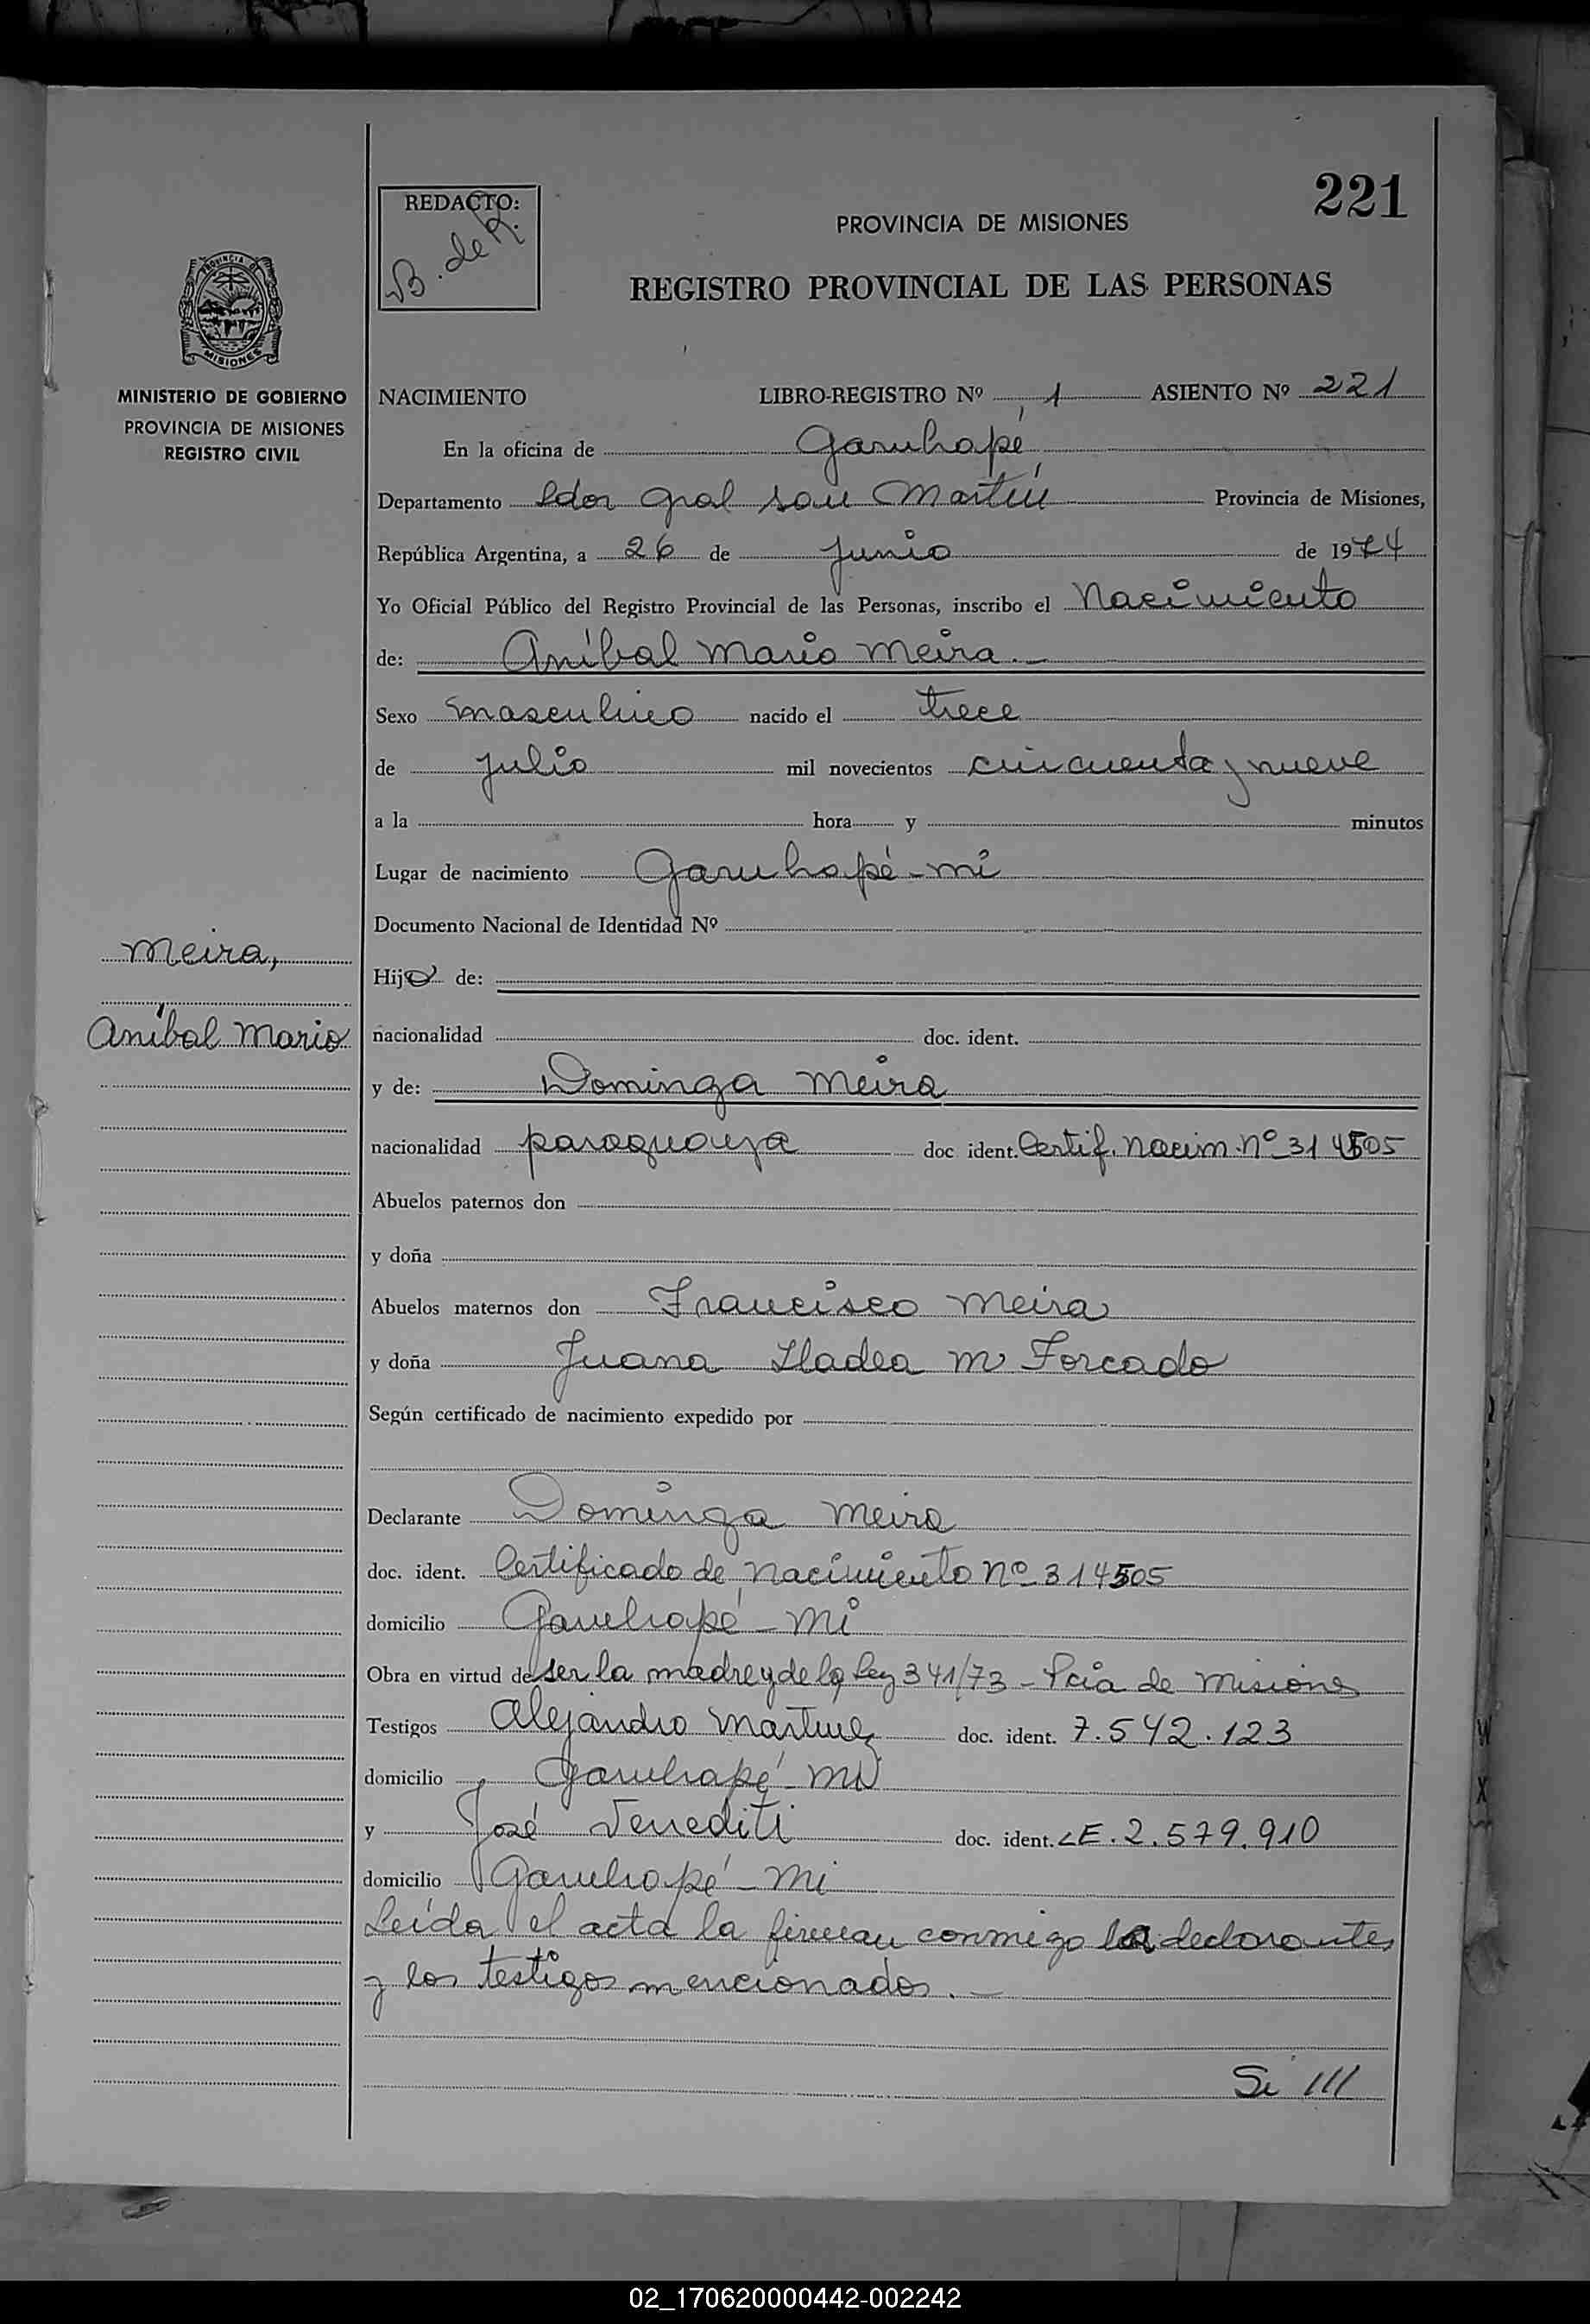 221
REDACTO:
B. de R.
PROVINCIA DE MISIONES
REGISTRO PROVINCIAL DE LAS PERSONAS
PROVINCIA DE
MISIONES
MINISTERIO DE GOBIERNO
PROVINCIA DE MISIONES
REGISTRO CIVIL
NACIMIENTO LIBRO-REGISTRO Nº 1 ASIENTO Nº 221
En la oficina de Garuhapé
Departamento Ldor Gral San Martín Provincia de Misiones,
República Argentina, a 26 de Junio de 1974
Yo Oficial Público del Registro Provincial de las Personas, inscribo el Nacimiento
de: Aníbal Mario Meira.-
Sexo masculino nacido el trece
de julio mil novecientos cincuenta y nueve
a la hora y minutos
Lugar de nacimiento Garuhapé-mi
Documento Nacional de Identidad Nº
Meira,
Hijo de:
Aníbal Mario
nacionalidad doc. ident.
y de: Dominga Meira
nacionalidad paraguaya doc ident. Certif. Nacim. Nº 314505
Abuelos paternos don
y doña
Abuelos maternos don Francisco Meira
y doña Juana M Forcado
Según certificado de nacimiento expedido por
Declarante Dominga Meira
doc. ident. Certificado de Nacimiento Nº 314505
domicilio Garuhapé-mi
Obra en virtud de ser la madre y de la Ley 341/73 - Pcia de Misiones
Testigos Alejandro Martinez doc. ident. 7.542.123
domicilio Garuhapé-mi
y José Venediti doc. ident. LE. 2.579.910
domicilio Garuhapé-mi
Leída el acta la firman conmigo la declarantes
y los testigos mencionados.-
Si ///
02_170620000442-002242